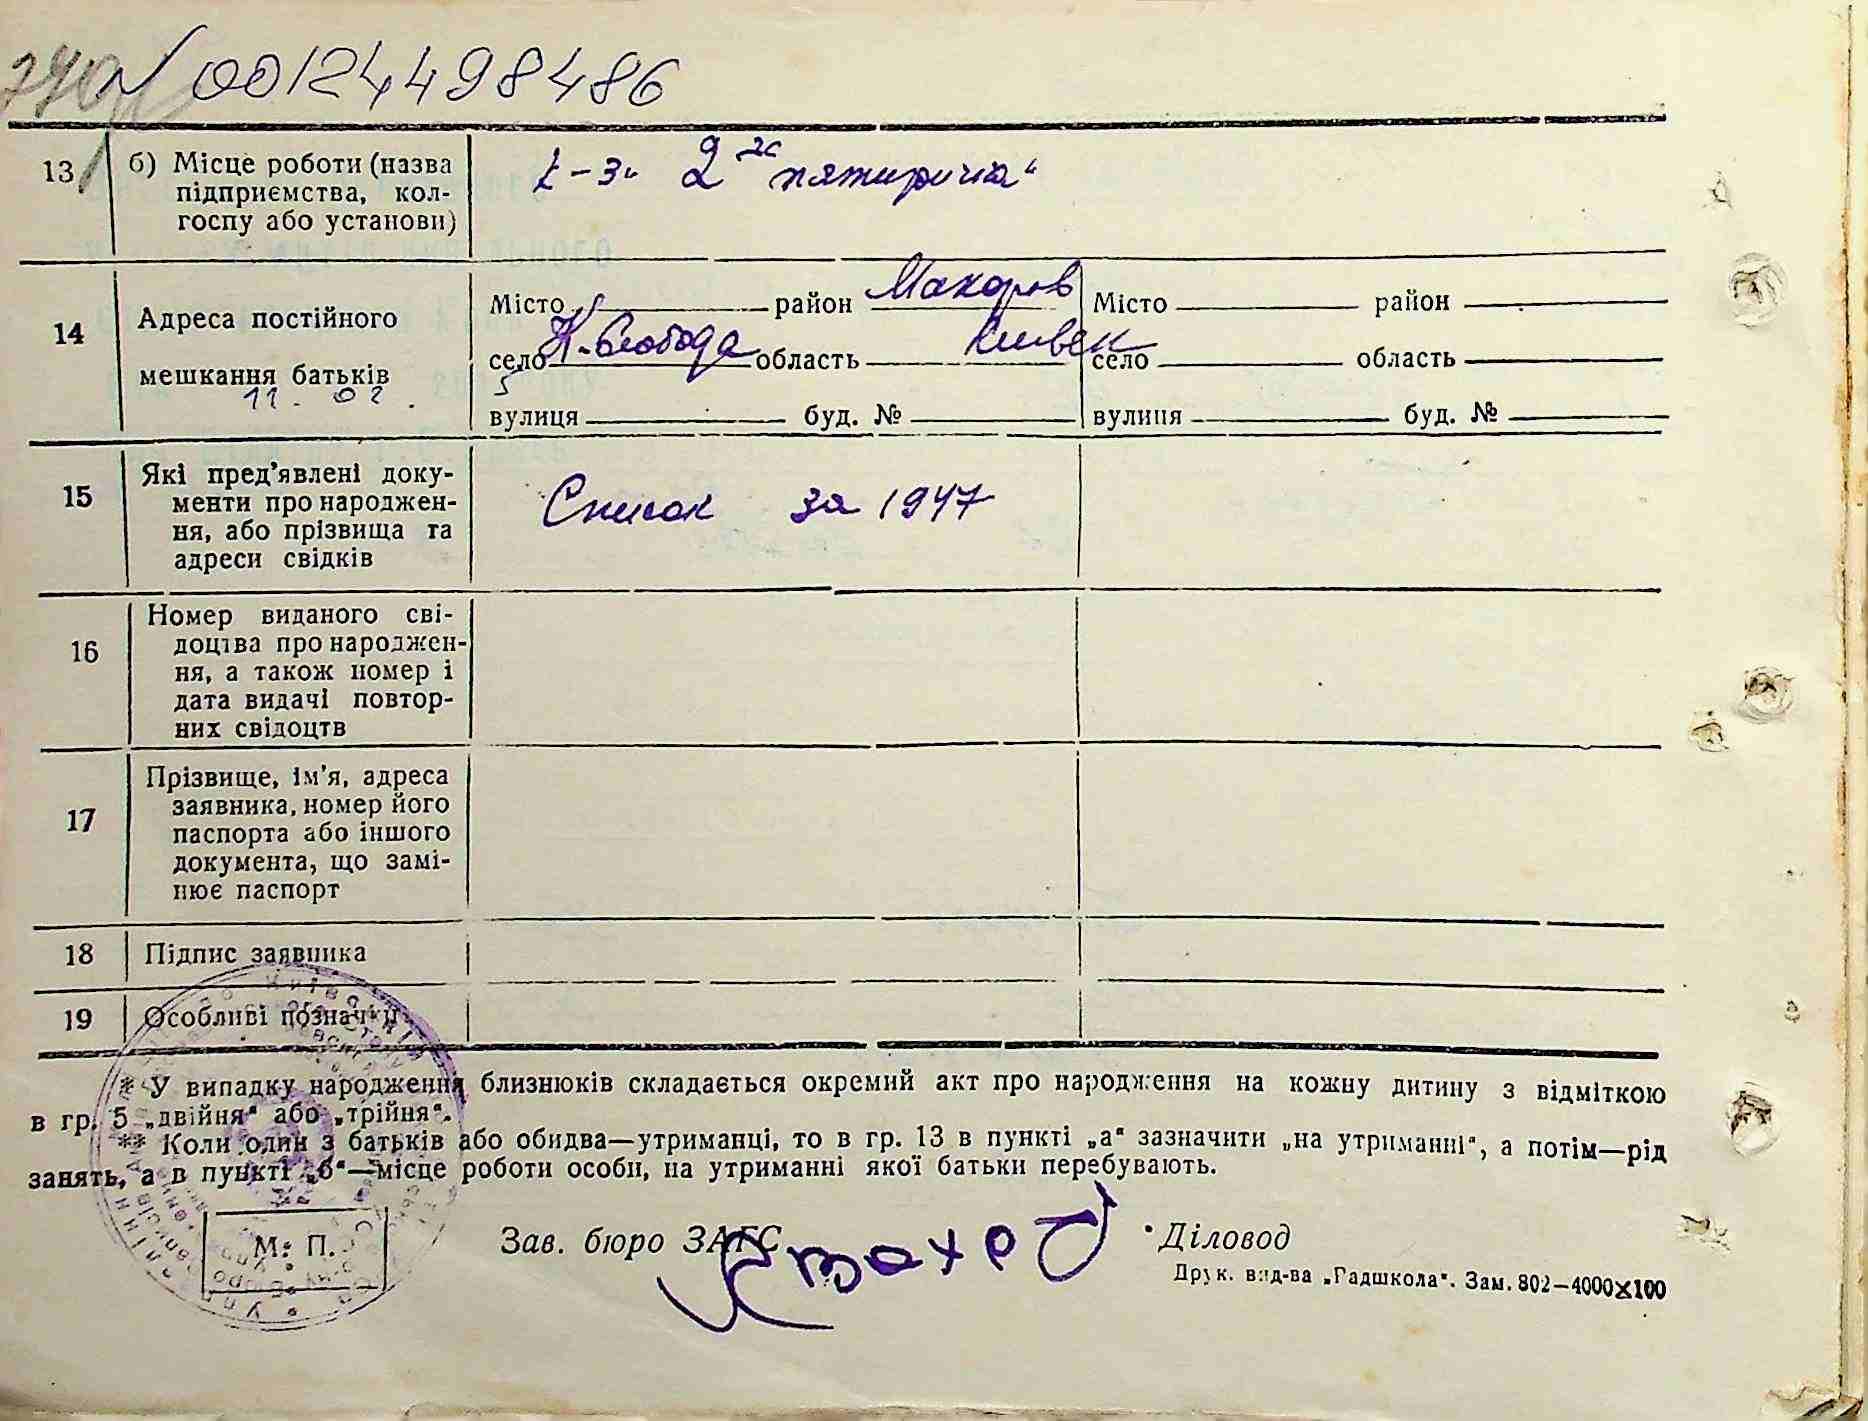 00124498486
13
б) Місце роботи (назва
підприємства, кол-
госпу або установи)
2га пятирічка"
14
Адреса постійного
мешкання батьків
11. 02.
Місто район Макаров
село К. Слобода область Київск
вулиця буд. №
Місто район
село область
вулиця буд. №
15
Які пред'явлені доку-
менти про народжен-
ня, або прізвища та
адреси свідків
Список за 1947
16
Номер виданого сві-
доцтва про народжен-
ня, а також номер і
дата видачі повтор-
них свідоцтв
17
Прізвище, ім'я, адреса
заявника, номер його
паспорта або іншого
документа, що замі-
нює паспорт
18
Підпис заявника
19
Особливі позначки
* У випадку народження близнюків складається окремий акт про народження на кожну дитину з відміткою
в гр. 5 „двійня" або „трійня".
** Коли один з батьків або обидва—утриманці, то в гр. 13 в пункті „а" зазначити „на утриманні", а потім—рід
занять, а в пункті „б"—місце роботи особи, на утриманні якої батьки перебувають.
М. П.
Зав. бюро ЗАГС
Діловод
Друк. вид-ва „Радшкола". Зам. 802—4000x100